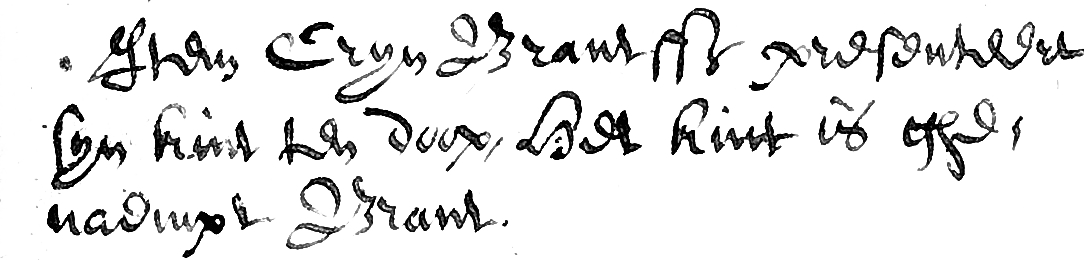 Item Cryn Brantssz presenteert
syn kint ten doop, Het kint is ghe,
naempt Brant.